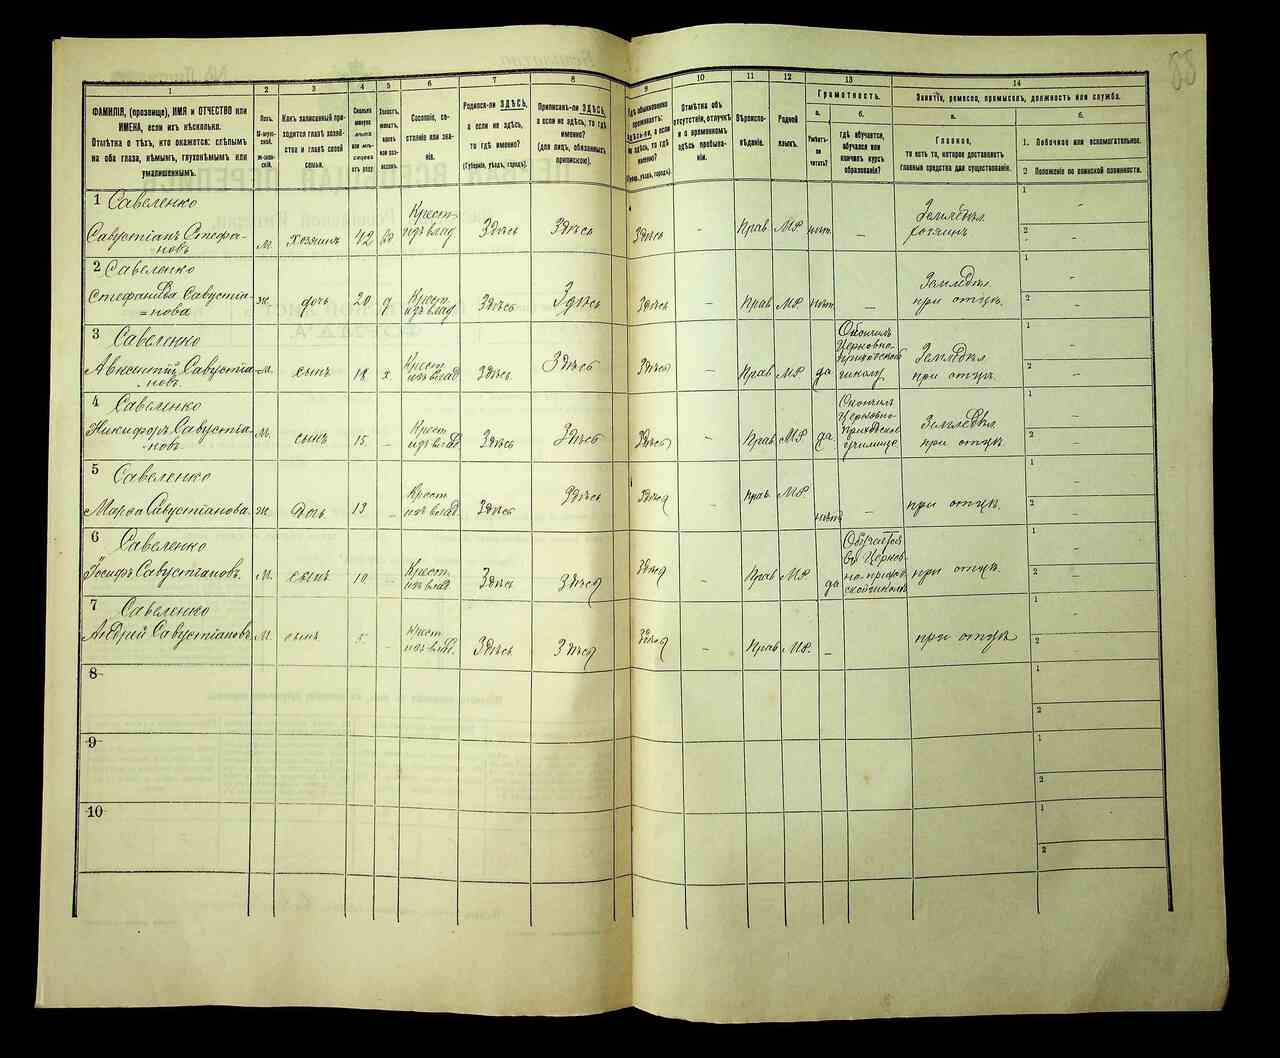 88
1
2
3
4
5
6
7
8
9
10
11
12
13
14
ФАМИЛІЯ, (прозвище), ИМЯ и ОТЧЕСТВО или
ИМЕНА, если ихъ нѣсколько.
Отмѣтка о тѣхъ, кто окажется: слѣпымъ
на оба глаза, нѣмымъ, глухонѣмымъ или
умалишеннымъ.
Полъ.
М-муж-
ской.
Ж-жен-
скій.
Какъ записанный при-
ходится главѣ хозяй-
ства и главѣ своей
семьи.
Сколько
минуло
лѣтъ
или мѣ-
сяцевъ
отъ роду
Холостъ,
женатъ,
вдовъ
или раз-
веденъ.
Сословіе, со-
стояніе или зва-
ніе.
Родился-ли ЗДѢСЬ,
а если не здѣсь,
то гдѣ именно?
(Губернія, уѣздъ, городъ).
Приписанъ-ли ЗДѢСЬ,
а если не здѣсь, то гдѣ
именно?
(для лицъ, обязанныхъ
припискою).
Гдѣ обыкновенно
проживаетъ:
здѣсь-ли, а если
не здѣсь, то гдѣ
именно?
(Губер., уѣздъ, городъ).
Отмѣтка объ
отсутствіи, отлучкѣ
и о временномъ
здѣсь пребыва-
ніи.
Вѣроиспо-
вѣданіе.
Родной
языкъ.
Грамотность.
а.
б.
Умѣетъ-
ли
читать?
гдѣ обучается,
обучался или
кончилъ курсъ
образованія?
Занятіе, ремесло, промыселъ, должность или служба.
а.
б.
Главное,
то есть то, которое доставляетъ
главныя средства для существованія.
1. Побочное или вспомогательное.
2 Положеніе по воинской повинности.
1 Савеленко
Савустіанъ Стефа-
-новъ
М.
хозяинъ
42
вд
Крест
изъ влад
Здѣсь
Здѣсь
Здѣсь
-
Прав
МР
нѣтъ
-
Земледѣл
хозяинъ
1
-
2
-
2 Савеленко
Стефанида Савустіа-
=нова
ж.
дочь
20
д
Крест
изъ влад
Здѣсь
Здѣсь
Здѣсь
-
Прав
МР
нѣтъ
-
Земледѣл
при отцѣ
1
-
2
-
3 Савеленко
Авксентій Савустіа-
-новъ
М.
сынъ
18
х
Крест
изъ влад
Здѣсь
Здѣсь
Здѣсь
-
Прав
МР
да
Окончилъ
Церковно-
приходской
школу
Земледѣл
при отцѣ
1
-
2
-
4 Савеленко
Никифоръ Савустіа-
-новъ
М.
сынъ
15
-
Крест
изъ влад
Здѣсь
Здѣсь
Здѣсь
-
Прав
МР
да
Окончилъ
Церковно-
Приходское
училище
Земледѣл
при отцѣ
1
-
2
-
5 Савеленко
Марѳа Савустіанова
ж.
Дочь
13
-
Крест
изъ влад
Здѣсь
Здѣсь
Здѣсь
-
Прав
МР
нѣтъ
-
при отцѣ
1
-
2
-
6 Савеленко
Іосифъ Савустіановъ
М.
сынъ
10
-
Крест
изъ влад
Здѣсь
Здѣсь
Здѣсь
-
Прав
МР
да
Обучается
въ Церков-
но-приход
ской школѣ
при отцѣ
1
-
2
-
7 Савеленко
Андрей Савустіановъ
М.
сынъ
5
-
Крест
изъ влад
Здѣсь
Здѣсь
Здѣсь
-
Прав
МР.
-
при отцѣ
1
2
8
1
2
9
1
2
10
1
2